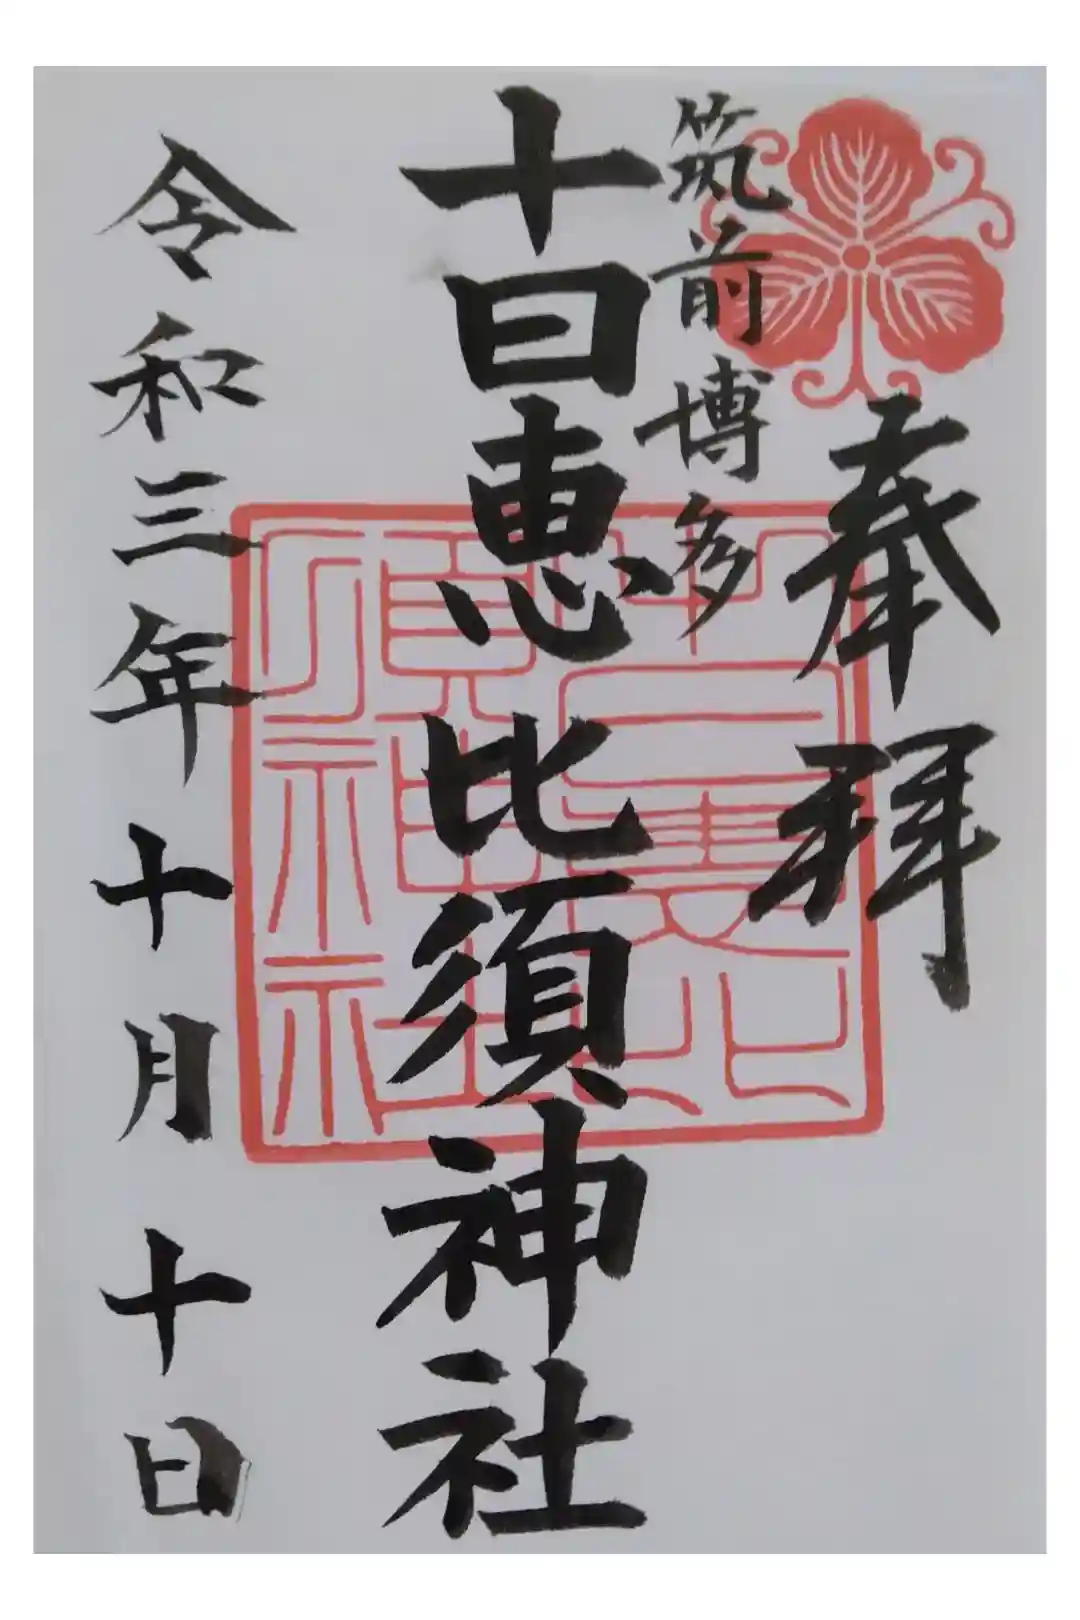 奉拝
筑前博多
十日恵比須神社
令和三年十月十日
十日恵比須神社